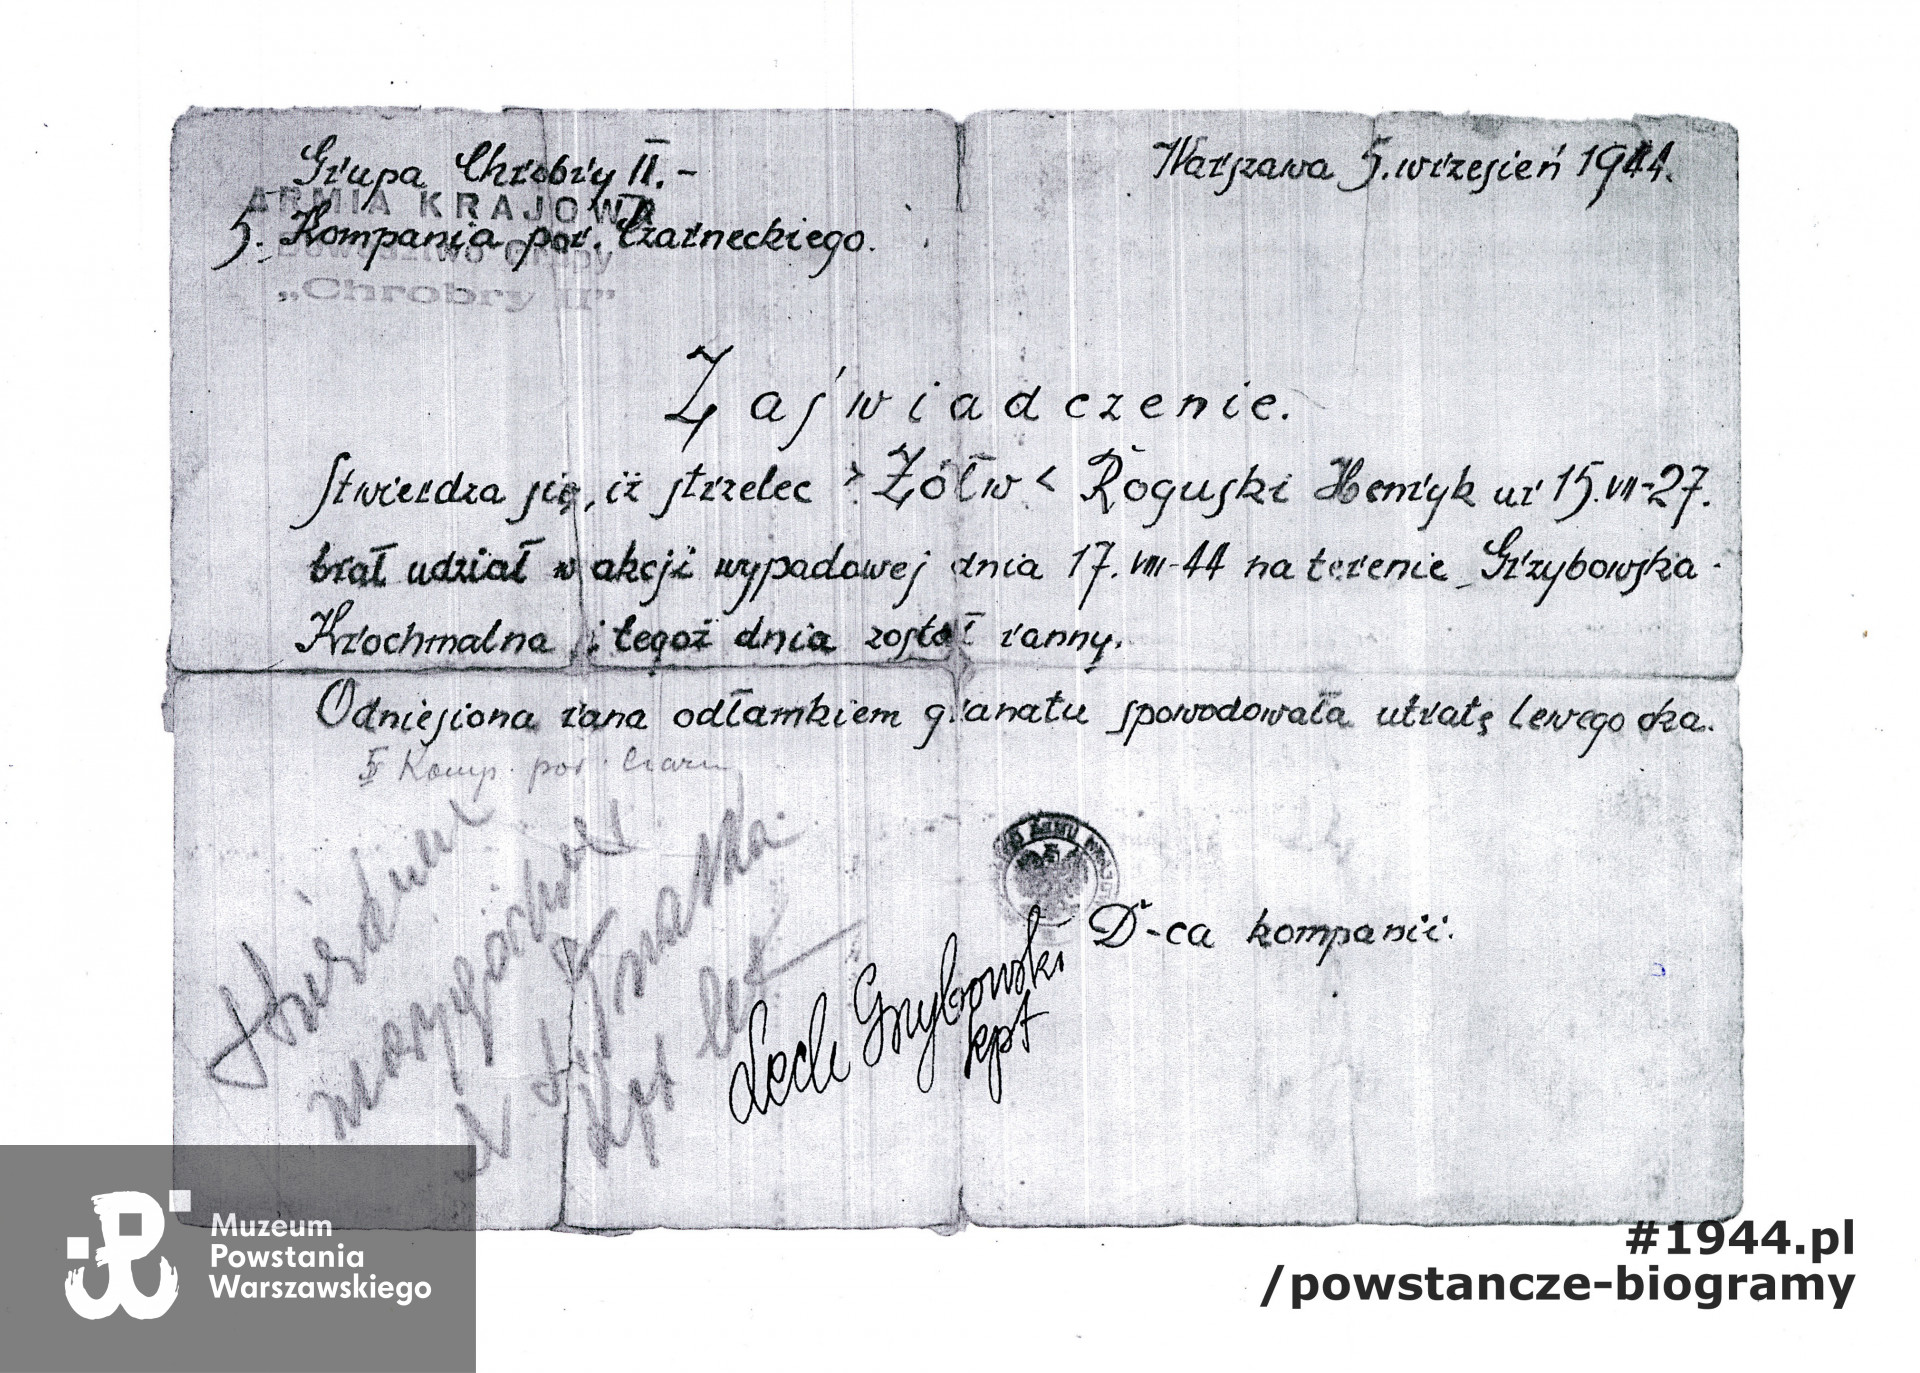 Grupa Chrobry II.-
Warszawa 5. wrzesień 1944.
ARMIA KRAJOWA
5. Kompania por. Czarneckiego.
Dowództwo Grupy
„Chrobry II”
Zaświadczenie.
Stwierdza się, iż strzelec > Żółw < Roguski Henryk ur 15.VII-27.
brał udział w akcji wypadowej dnia 17.VIII-44 na terenie Grzybowska-
Krochmalna i tegoż dnia został ranny.
Odniesiona rana odłamkiem granatu spowodowała utratę lewego oka.
5 Komp. por. Czarn
D-ca kompanii.
Lech Grzybowski
kpt
Muzeum
Powstania
Warszawskiego
#1944.pl
/powstancze-biogramy